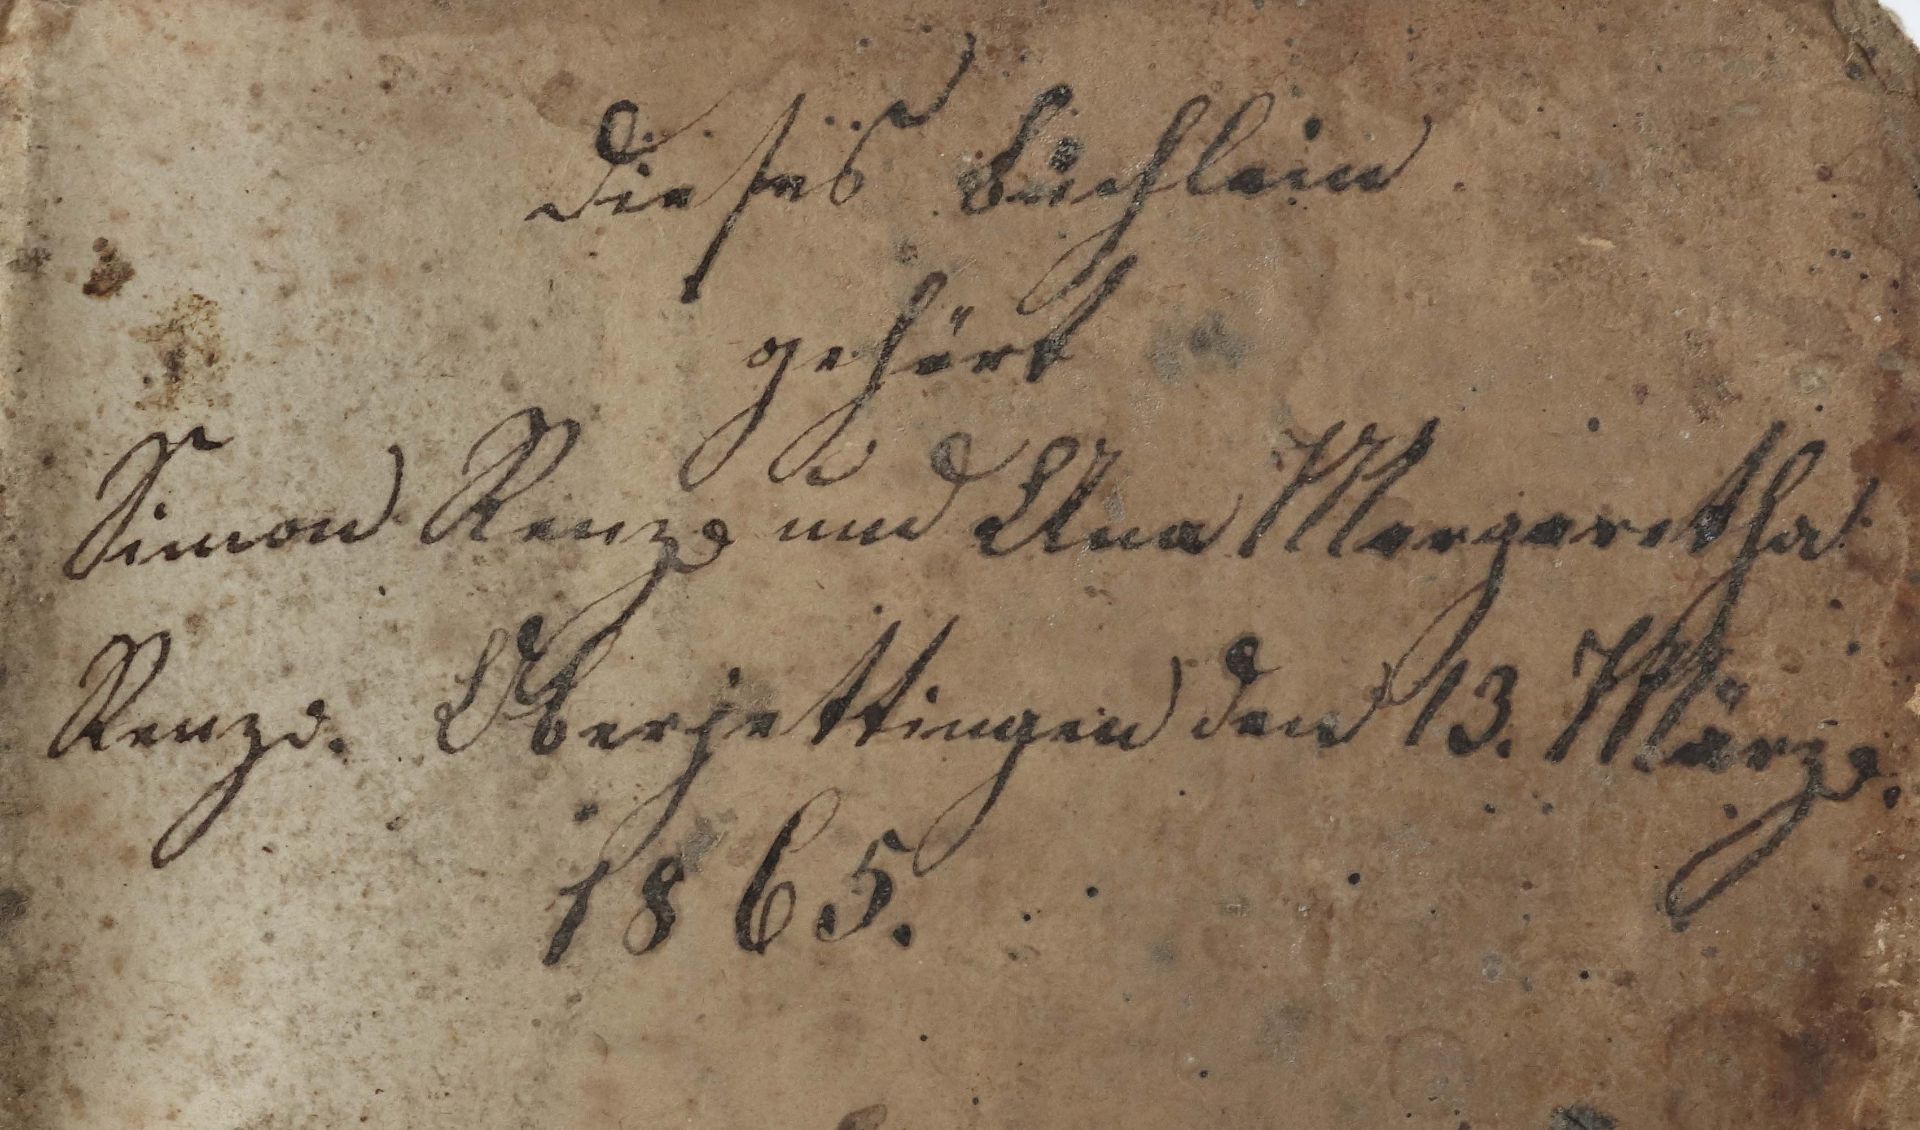 dieses Büchlein
gehört
Simon Renz und Ana Margaretha
Renz. Oberjettingen den 13. März.
1865.